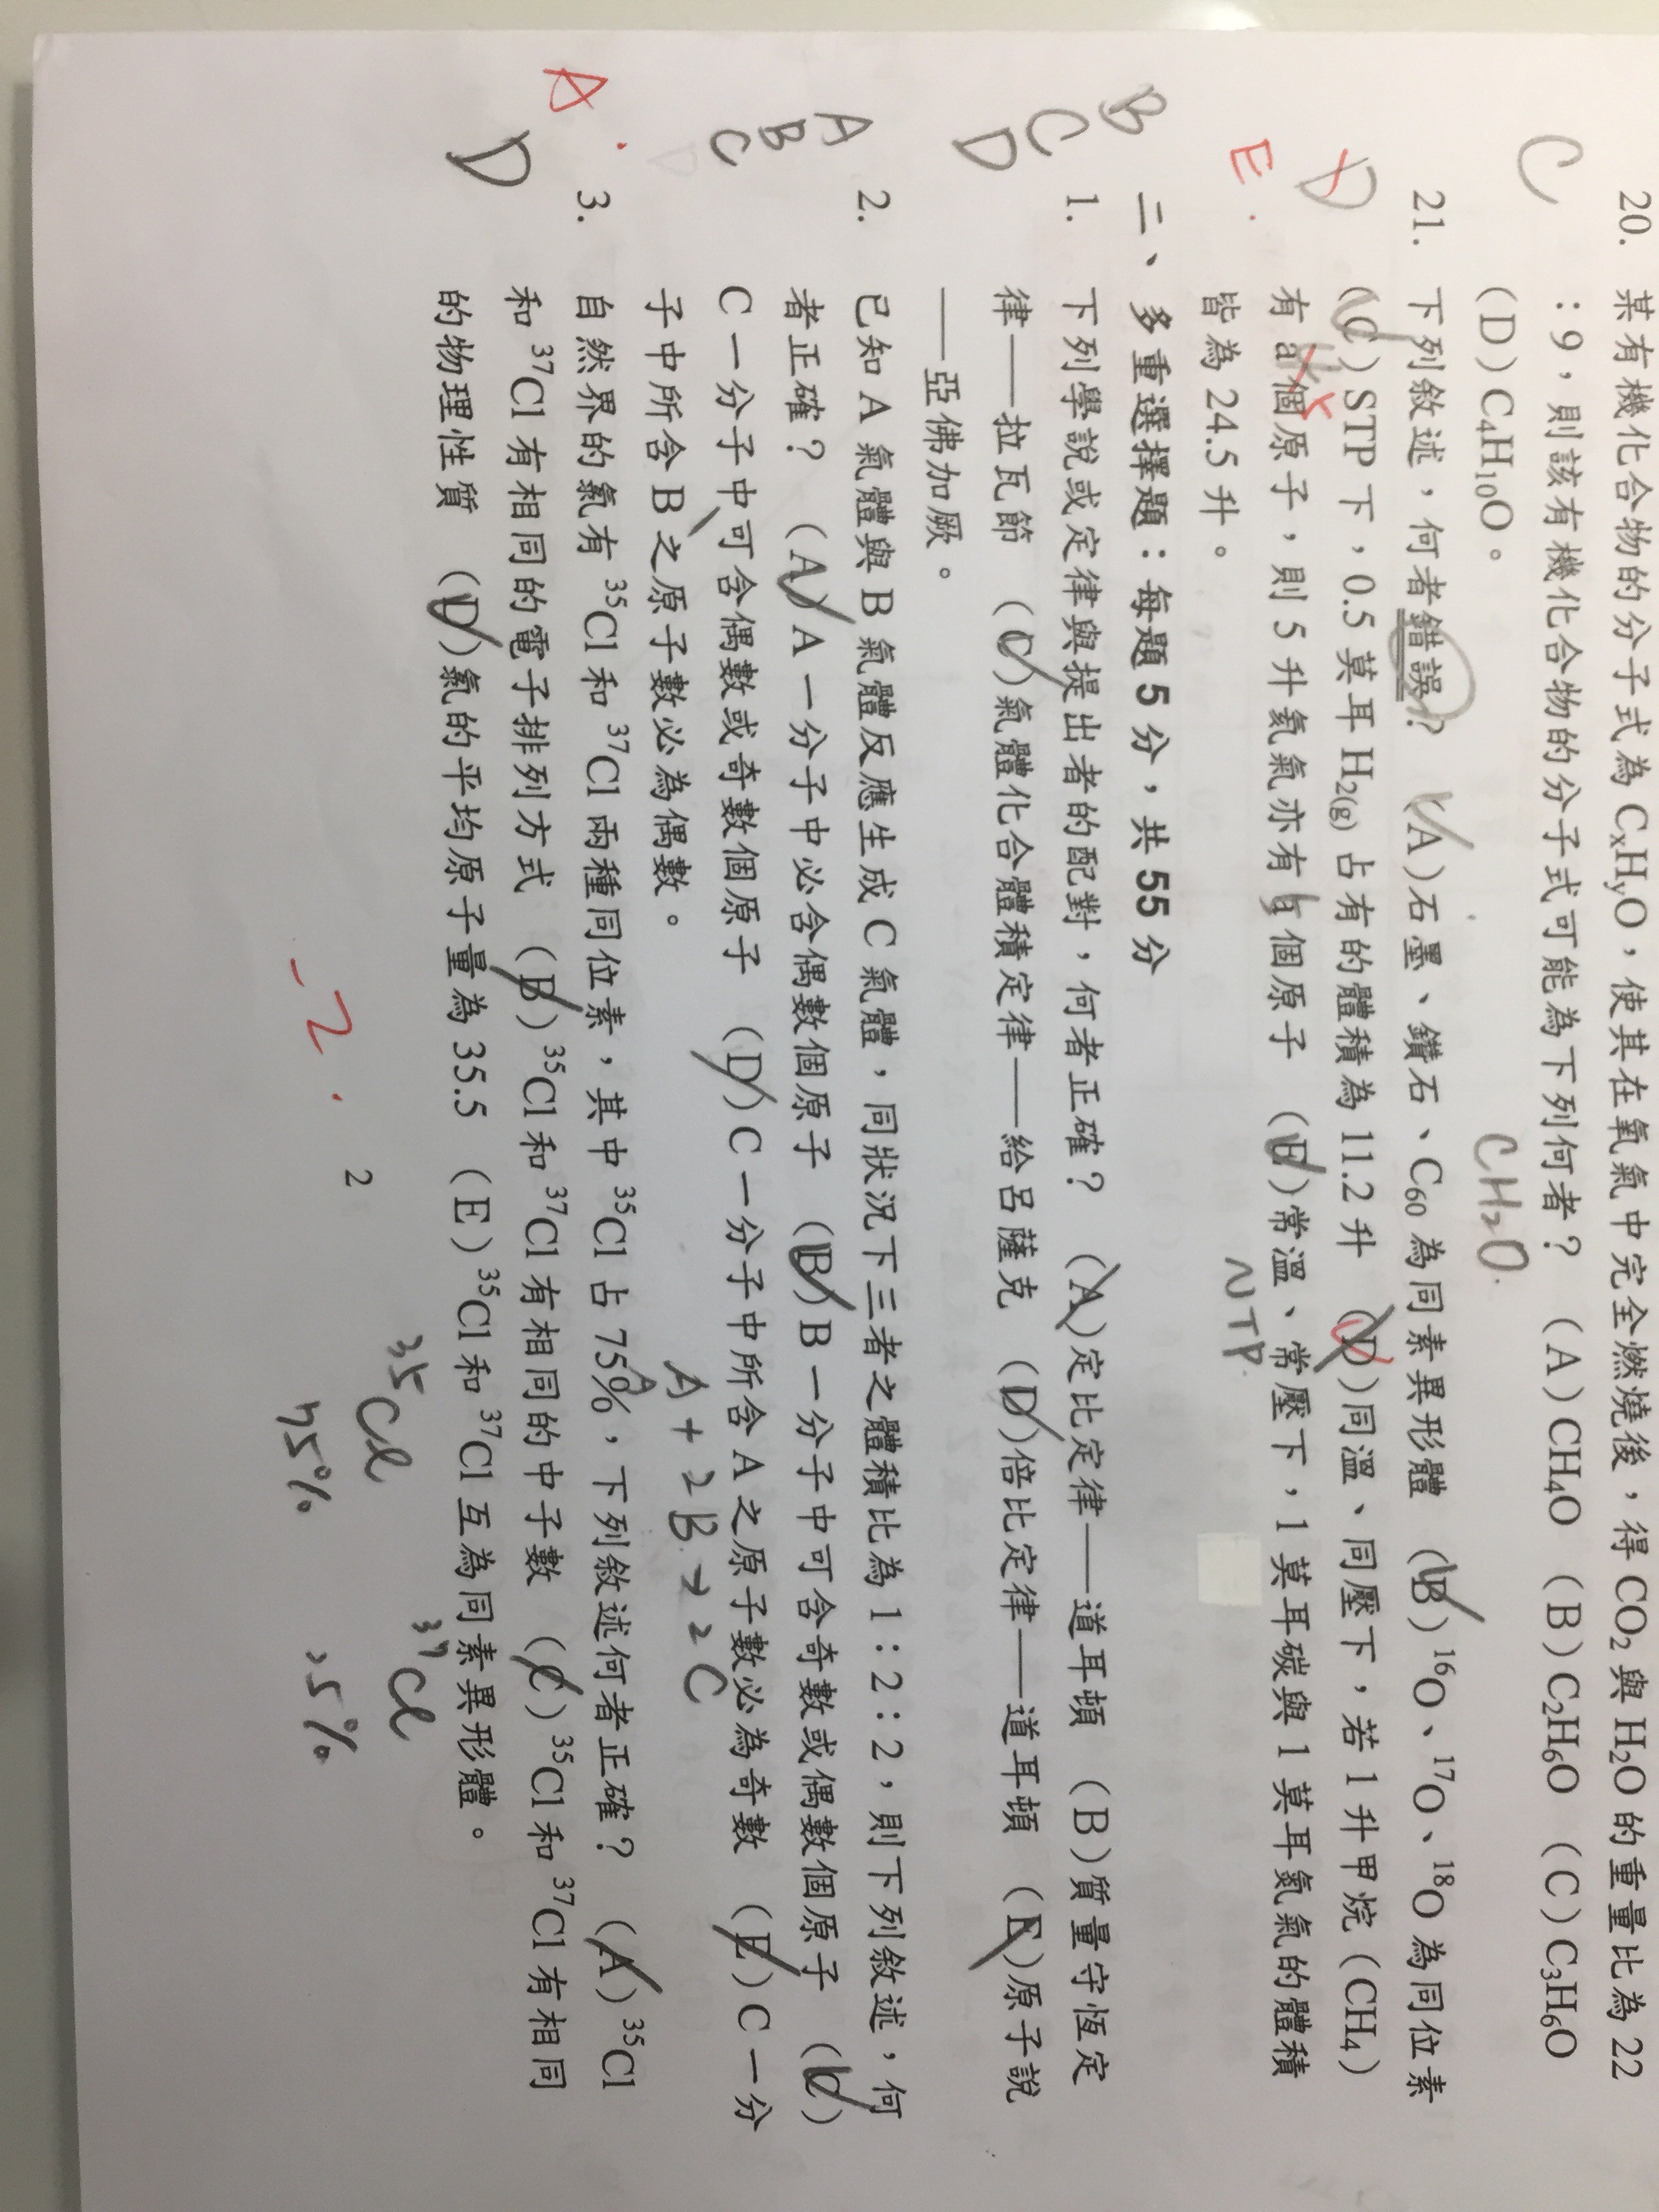 C
20. 某有機化合物的分子式為 CxHyO，使其在氧氣中完全燃燒後，得 CO2 與 H2O 的重量比為 22
：9，則該有機化合物的分子式可能為下列何者？ (A)CH4O (B)C2H6O (C)C3H6O
(D)C4H10O。
CH2O.
D
E.
21. 下列敘述，何者錯誤？ (A)石墨、鑽石、C60 為同素異形體 (B)16O、17O、18O 為同位素
(C)STP 下，0.5 莫耳 H2(g) 占有的體積為 11.2 升 (D)同溫、同壓下，若 1 升甲烷(CH4)
有 a 個原子，則 5 升氦氣亦有 a 個原子 (E)常溫、常壓下，1 莫耳碳與 1 莫耳氮氣的體積
皆為 24.5 升。
NTP.
二、多重選擇題：每題 5 分，共 55 分
B
C
D
1. 下列學說或定律與提出者的配對，何者正確？ (A)定比定律——道耳頓 (B)質量守恆定
律——拉瓦節 (C)氣體化合體積定律——給呂薩克 (D)倍比定律——道耳頓 (E)原子說
——亞佛加厥。
A
B
C
2. 已知 A 氣體與 B 氣體反應生成 C 氣體，同狀況下三者之體積比為 1：2：2，則下列敘述，何
者正確？ (A)A 一分子中必含偶數個原子 (B)B 一分子中可含奇數或偶數個原子 (C)
C 一分子中可含偶數或奇數個原子 (D)C 一分子中所含 A 之原子數必為奇數 (E)C 一分
子中所含 B 之原子數必為偶數。
A + 2B → 2C
A.
D
3. 自然界的氯有 35Cl 和 37Cl 兩種同位素，其中 35Cl 占 75%，下列敘述何者正確？ (A)35Cl
和 37Cl 有相同的電子排列方式 (B)35Cl 和 37Cl 有相同的中子數 (C)35Cl 和 37Cl 有相同
的物理性質 (D)氯的平均原子量為 35.5 (E)35Cl 和 37Cl 互為同素異形體。
35Cl 37Cl
75% 25%
-2.
2